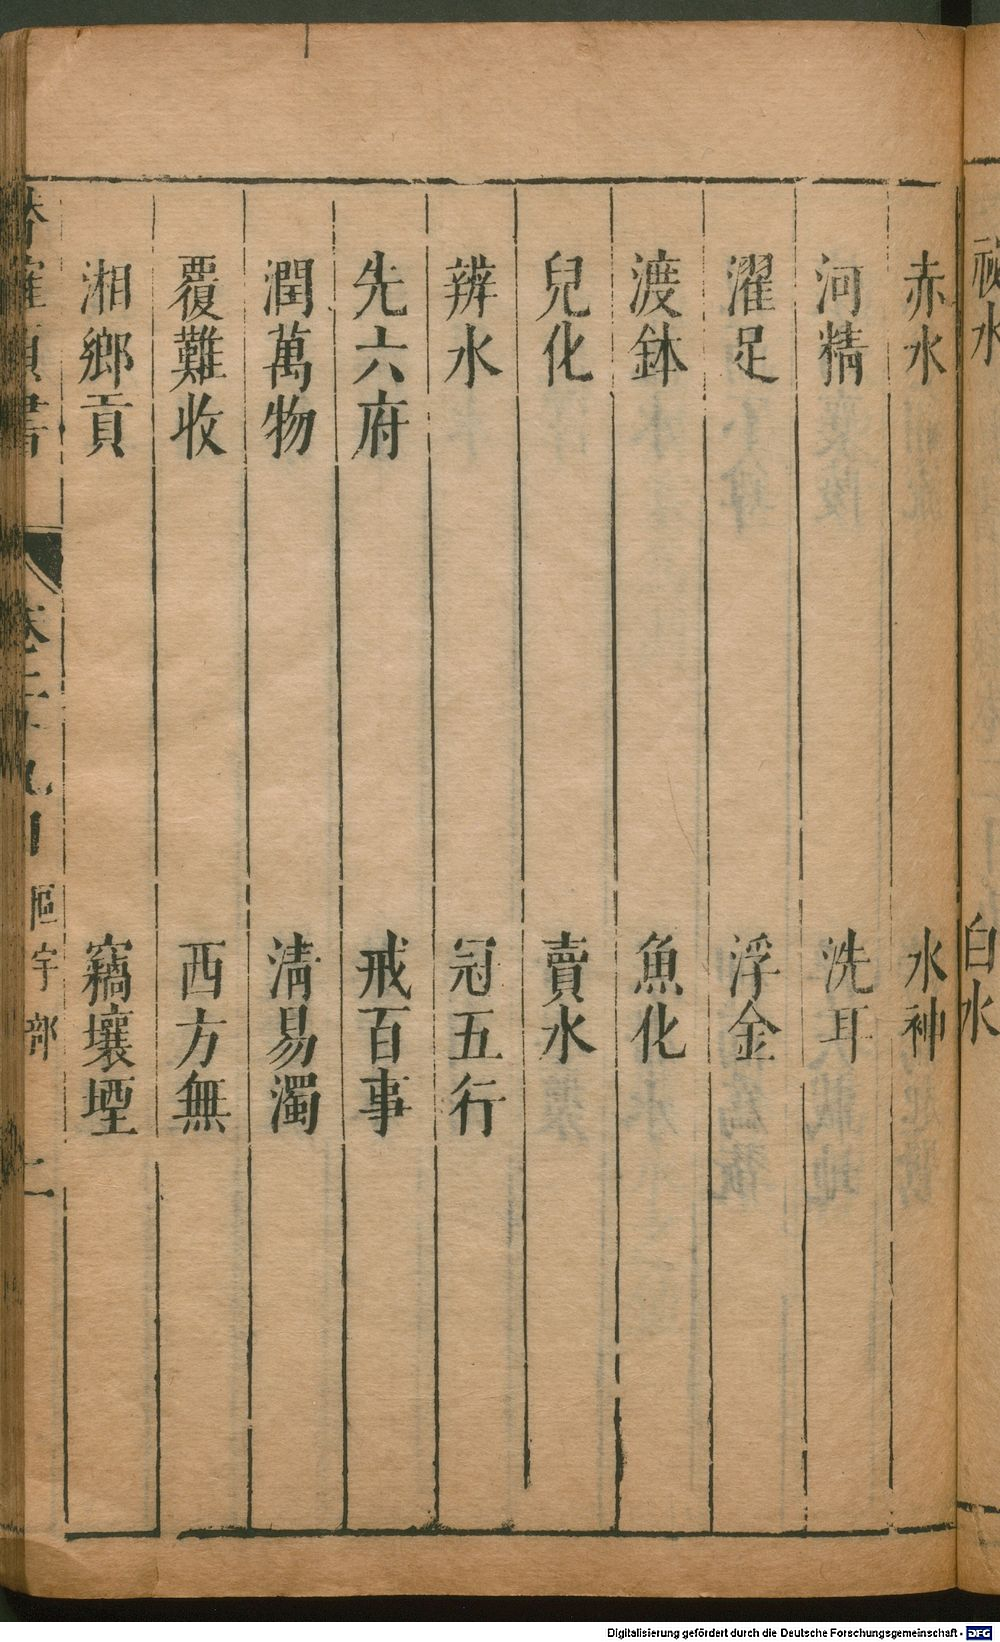 祕水　白水
赤水　水神
河精　洗耳
濯足　浮金
渡鉢　魚化
兒化　賣水
辨水　冠五行
先六府　戒百事
潤萬物　清易濁
覆難收　西方無
湘鄉貢　竊壤堙
書　卷　區宇部　二
Digitalisierung gefördert durch die Deutsche Forschungsgemeinschaft - DFG